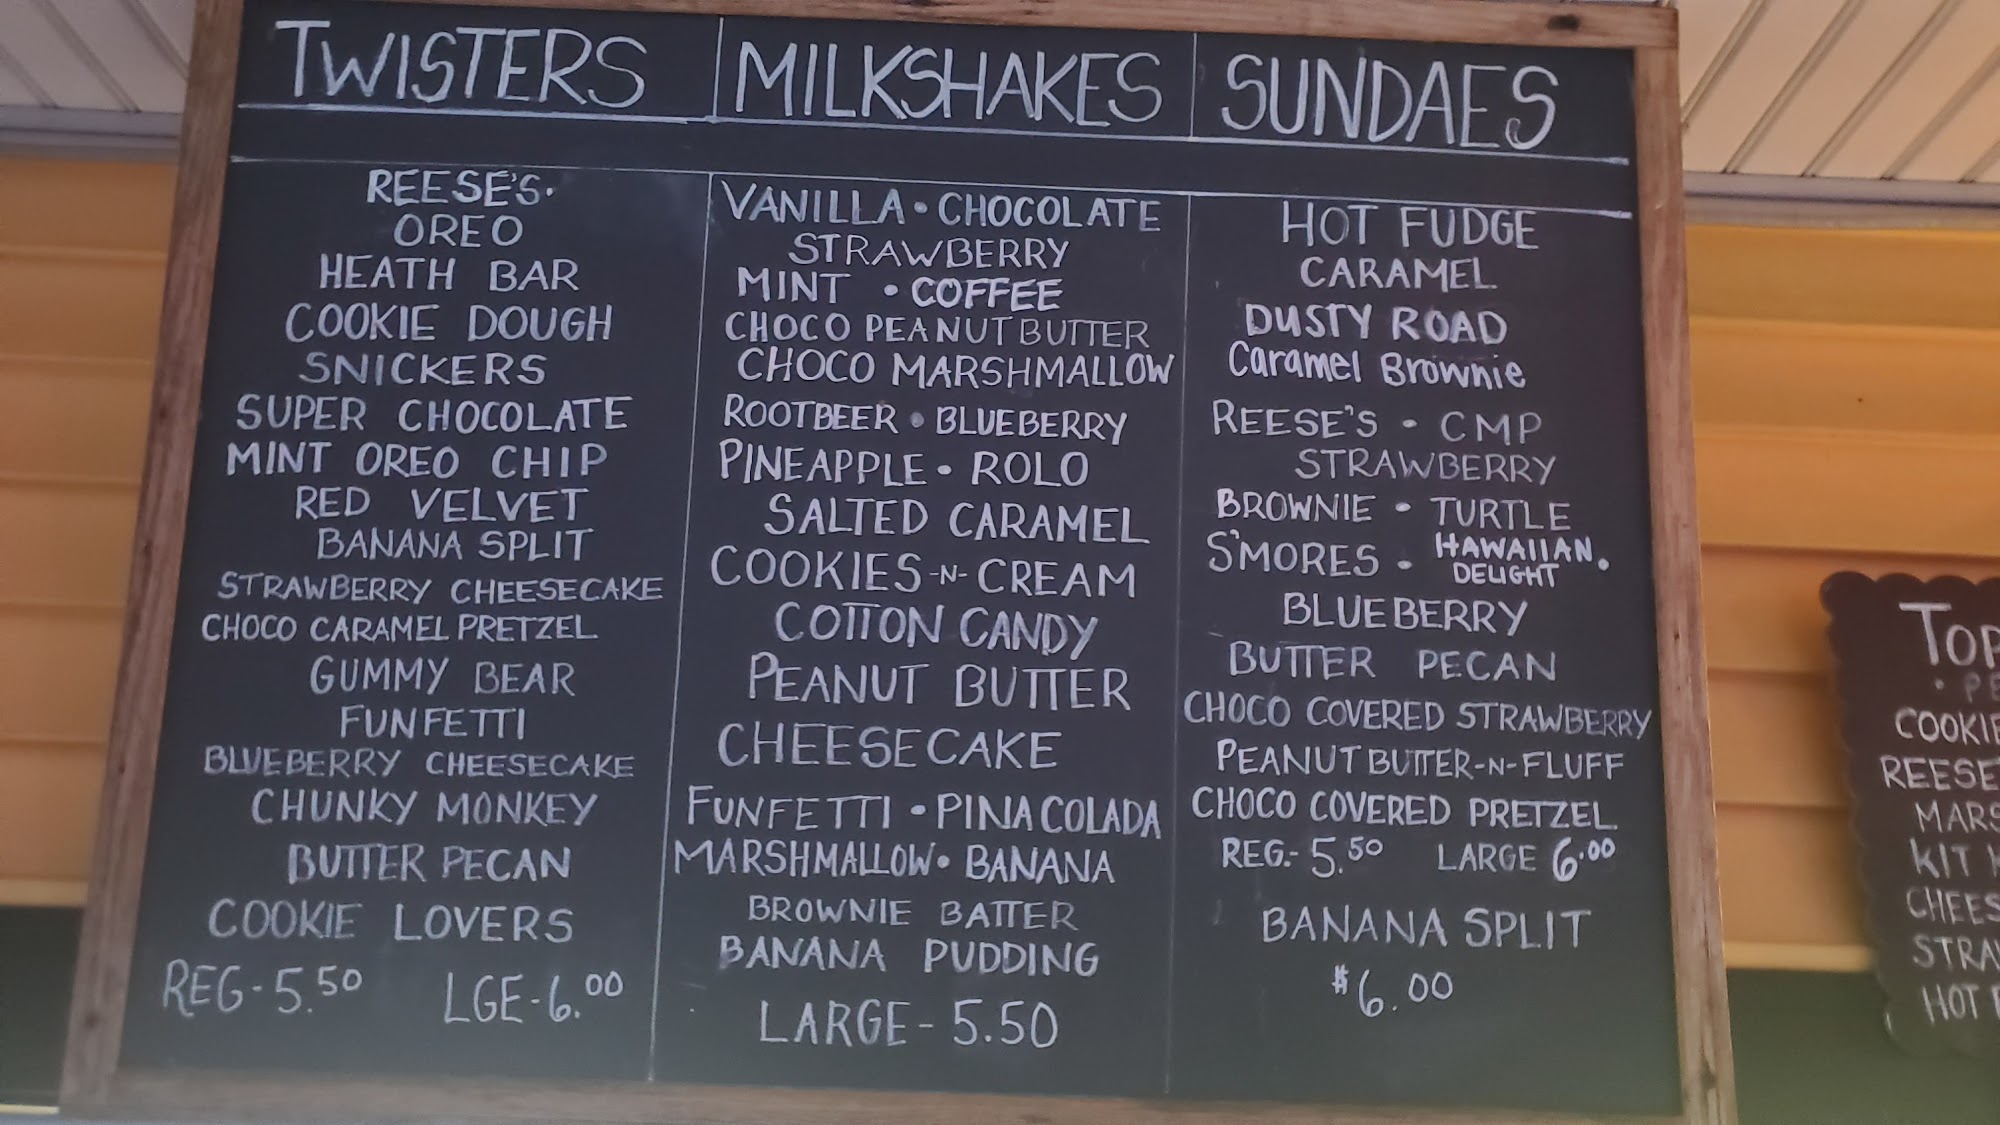 TWISTERS
REESE'S·
OREO
HEATH BAR
COOKIE DOUGH
SNICKERS
SUPER CHOCOLATE
MINT OREO CHIP
RED VELVET
BANANA SPLIT
STRAWBERRY CHEESECAKE
CHOCO CARAMEL PRETZEL
GUMMY BEAR
FUNFETTI
BLUEBERRY CHEESECAKE
CHUNKY MONKEY
BUTTER PECAN
COOKIE LOVERS
REG-5.50 LGE-6.00
MILKSHAKES
VANILLA • CHOCOLATE
STRAWBERRY
MINT • COFFEE
CHOCO PEANUT BUTTER
CHOCO MARSHMALLOW
ROOTBEER • BLUEBERRY
PINEAPPLE • ROLO
SALTED CARAMEL
COOKIES -N- CREAM
COTTON CANDY
PEANUT BUTTER
CHEESECAKE
FUNFETTI • PINA COLADA
MARSHMALLOW • BANANA
BROWNIE BATTER
BANANA PUDDING
LARGE - 5.50
SUNDAES
HOT FUDGE
CARAMEL
DUSTY ROAD
Caramel Brownie
REESE'S • CMP
STRAWBERRY
BROWNIE • TURTLE
S'MORES • HAWAIIAN •
DELIGHT
BLUEBERRY
BUTTER PECAN
CHOCO COVERED STRAWBERRY
PEANUT BUTTER-N-FLUFF
CHOCO COVERED PRETZEL
REG.- 5.50 LARGE 6.00
BANANA SPLIT
$6.00
COOKIE
REESE
KIT
HOT